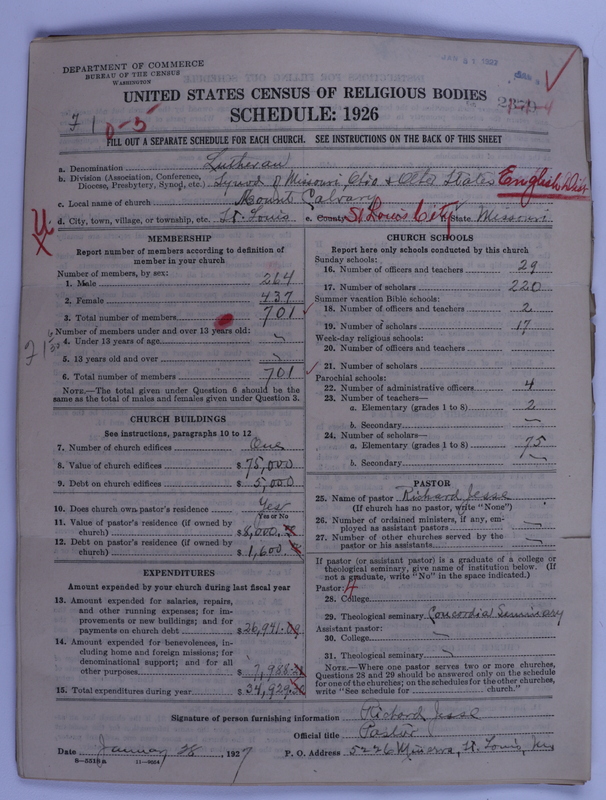 DEPARTMENT OF COMMERCE
BUREAU OF THE CENSUS
WASHINGTON
UNITED STATES CENSUS OF RELIGIOUS BODIES
SCHEDULE: 1926
FILL OUT A SEPARATE SCHEDULE FOR EACH CHURCH. SEE INSTRUCTIONS ON THE BACK OF THIS SHEET
a. Denomination Lutheran
b. Division (Association, Conference, Diocese, Presbytery, Synod, etc.) Synod of Missouri, Ohio & Other States English Dist
c. Local name of church Mount Calvary
d. City, town, village, or township, etc. St. Louis e. County St Louis City f. State Missouri
MEMBERSHIP
Report number of members according to definition of
member in your church
Number of members, by sex:
1. Male 264
2. Female 437
3. Total number of members 701
Number of members under and over 13 years old:
4. Under 13 years of age
5. 13 years old and over
6. Total number of members 701
NOTE.—The total given under Question 6 should be the
same as the total of males and females given under Question 3.
CHURCH BUILDINGS
See instructions, paragraphs 10 to 12
7. Number of church edifices One
8. Value of church edifices $ 75,000
9. Debt on church edifices $ 5,000
10. Does church own pastor's residence Yes
Yes or No
11. Value of pastor's residence (if owned by
church) $ 8,000
12. Debt on pastor's residence (if owned by
church) $ 1,600
EXPENDITURES
Amount expended by your church during last fiscal year
13. Amount expended for salaries, repairs,
and other running expenses; for im-
provements or new buildings; and for
payments on church debt $ 26,941.
14. Amount expended for benevolences, in-
cluding home and foreign missions; for
denominational support; and for all
other purposes $ 7,988.
15. Total expenditures during year $ 34,929.
CHURCH SCHOOLS
Report here only schools conducted by this church
Sunday schools:
16. Number of officers and teachers 29
17. Number of scholars 220
Summer vacation Bible schools:
18. Number of officers and teachers 2
19. Number of scholars 17
Week-day religious schools:
20. Number of officers and teachers
21. Number of scholars
Parochial schools:
22. Number of administrative officers 4
23. Number of teachers—
a. Elementary (grades 1 to 8) 2
b. Secondary
24. Number of scholars—
a. Elementary (grades 1 to 8) 75
b. Secondary
PASTOR
25. Name of pastor Richard Jesse
(If church has no pastor, write "None")
26. Number of ordained ministers, if any, em-
ployed as assistant pastors
27. Number of other churches served by the
pastor or his assistants
If pastor (or assistant pastor) is a graduate of a college or
theological seminary, give name of institution below. (If
not a graduate, write "No" in the space indicated.)
Pastor:
28. College
29. Theological seminary Concordia Seminary
Assistant pastor:
30. College
31. Theological seminary
NOTE.—Where one pastor serves two or more churches,
Questions 28 and 29 should be answered only on the schedule
for one of the churches; on the schedules for the other churches,
write "See schedule for church."
Signature of person furnishing information Richard Jesse
Official title Pastor
Date January 28 1927 P. O. Address 5226 Minerva, St. Louis, Mo
11—9024